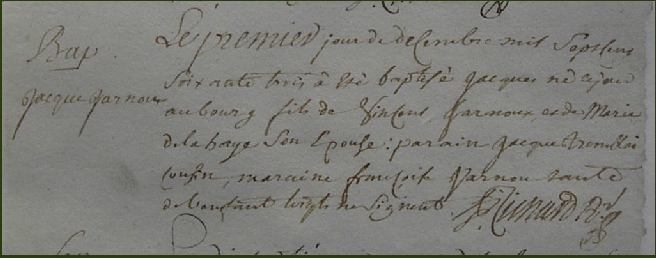 Bap.
Jacque Jarnoux
Le premier jour de decembre mil sept cens
soixante trois a été baptisé Jacques né ce jour
au bourg fils de Vincent Jarnoux et de Marie
de la haye son epouse : parain Jacque
cousin, maraine françoise Jarnou tante
de l'enfant ne signent.